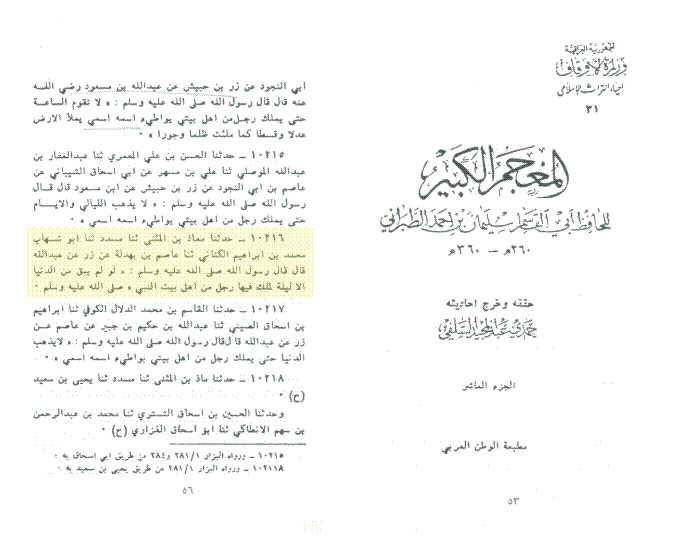 الجمهورية العراقية
وزارة الأوقاف
إحياء التراث الإسلامي
٣١
المعجم الكبير
للحافظ أبي القاسم سليمان بن أحمد الطبراني
٢٦٠هـ – ٣٦٠هـ
حققه وخرج احاديثه
حمدي عبد المجيد السلفي
الجزء العاشر
مطبعة الوطن العربي
٥٣
ابي النجود عن زر بن حبيش عن عبدالله بن مسعود رضي الله
عنه قال قال رسول الله صلى الله عليه وسلم : « لا تقوم الساعة
حتى يملك رجل من اهل بيتي يواطيء اسمه اسمي يملأ الارض
عدلا وقسطا كما ملئت ظلما وجورا » ٠
١٠٢١٥ – حدثنا الحسن بن علي المعمري ثنا عبدالغفار بن
عبدالله الموصلي ثنا علي بن مسهر عن ابي اسحاق الشيباني عن
عاصم بن ابي النجود عن زر بن حبيش عن ابن مسعود قال قال
رسول الله صلى الله عليه وسلم : « لا يذهب الليالي والايام
حتى يملك رجل من اهل بيتي يواطيء اسمه اسمي » ٠
١٠٢١٦ – حدثنا معاذ بن المثنى ثنا مسدد ثنا ابو شهاب
محمد بن ابراهيم الكناني ثنا عاصم بن بهدلة عن زر عن عبدالله
قال قال رسول الله صلى الله عليه وسلم : « لو لم يبق من الدنيا
الا ليلة لملك فيها رجل من اهل بيت النبي » صلى الله عليه وسلم ٠
١٠٢١٧ – حدثنا القاسم بن محمد الدلال الكوفي ثنا ابراهيم
بن اسحاق الصيني ثنا عبدالله بن حكيم بن جبير عن عاصم عن
زر عن عبدالله قا ل قال رسول الله صلى الله عليه وسلم : « لايذهب
الدنيا حتى يملك رجل من اهل بيتي يواطيء اسمه اسمي » ٠
١٠٢١٨ – حدثنا ماذ بن المثنى ثنا مسدد ثنا يحيى بن سعيد
(ح) ٠
وحدثنا الحسين بن اسحاق التستري ثنا محمد بن عبدالرحمن
بن سهم الانطاكي ثنا ابو اسحاق الفزاري (ح) ٠
١٠٢١٥ – ورواه البزار ٢٨١/١ و٢٨٤ من طريق ابي اسحاق به ٠
١٠٢١١٨ – ورواه البزار ٢٨١/١ من طريق يحيى بن سعيد به ٠
٥٦